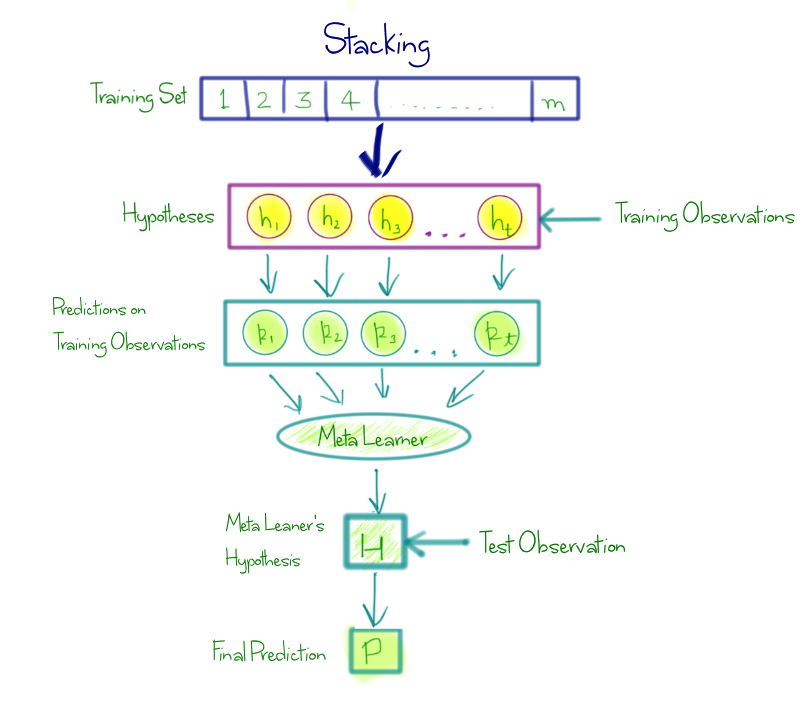 Stacking
Training Set
1 2 3 4 ......... m
Hypotheses
h1 h2 h3 ... ht
Training Observations
Predictions on
Training Observations
p1 p2 p3 ... pt
Meta Learner
Meta Leaner's
Hypothesis
H
Test Observation
Final Prediction
P